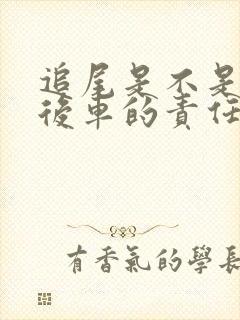 追尾是不是
後車的責任
有香氣的學長